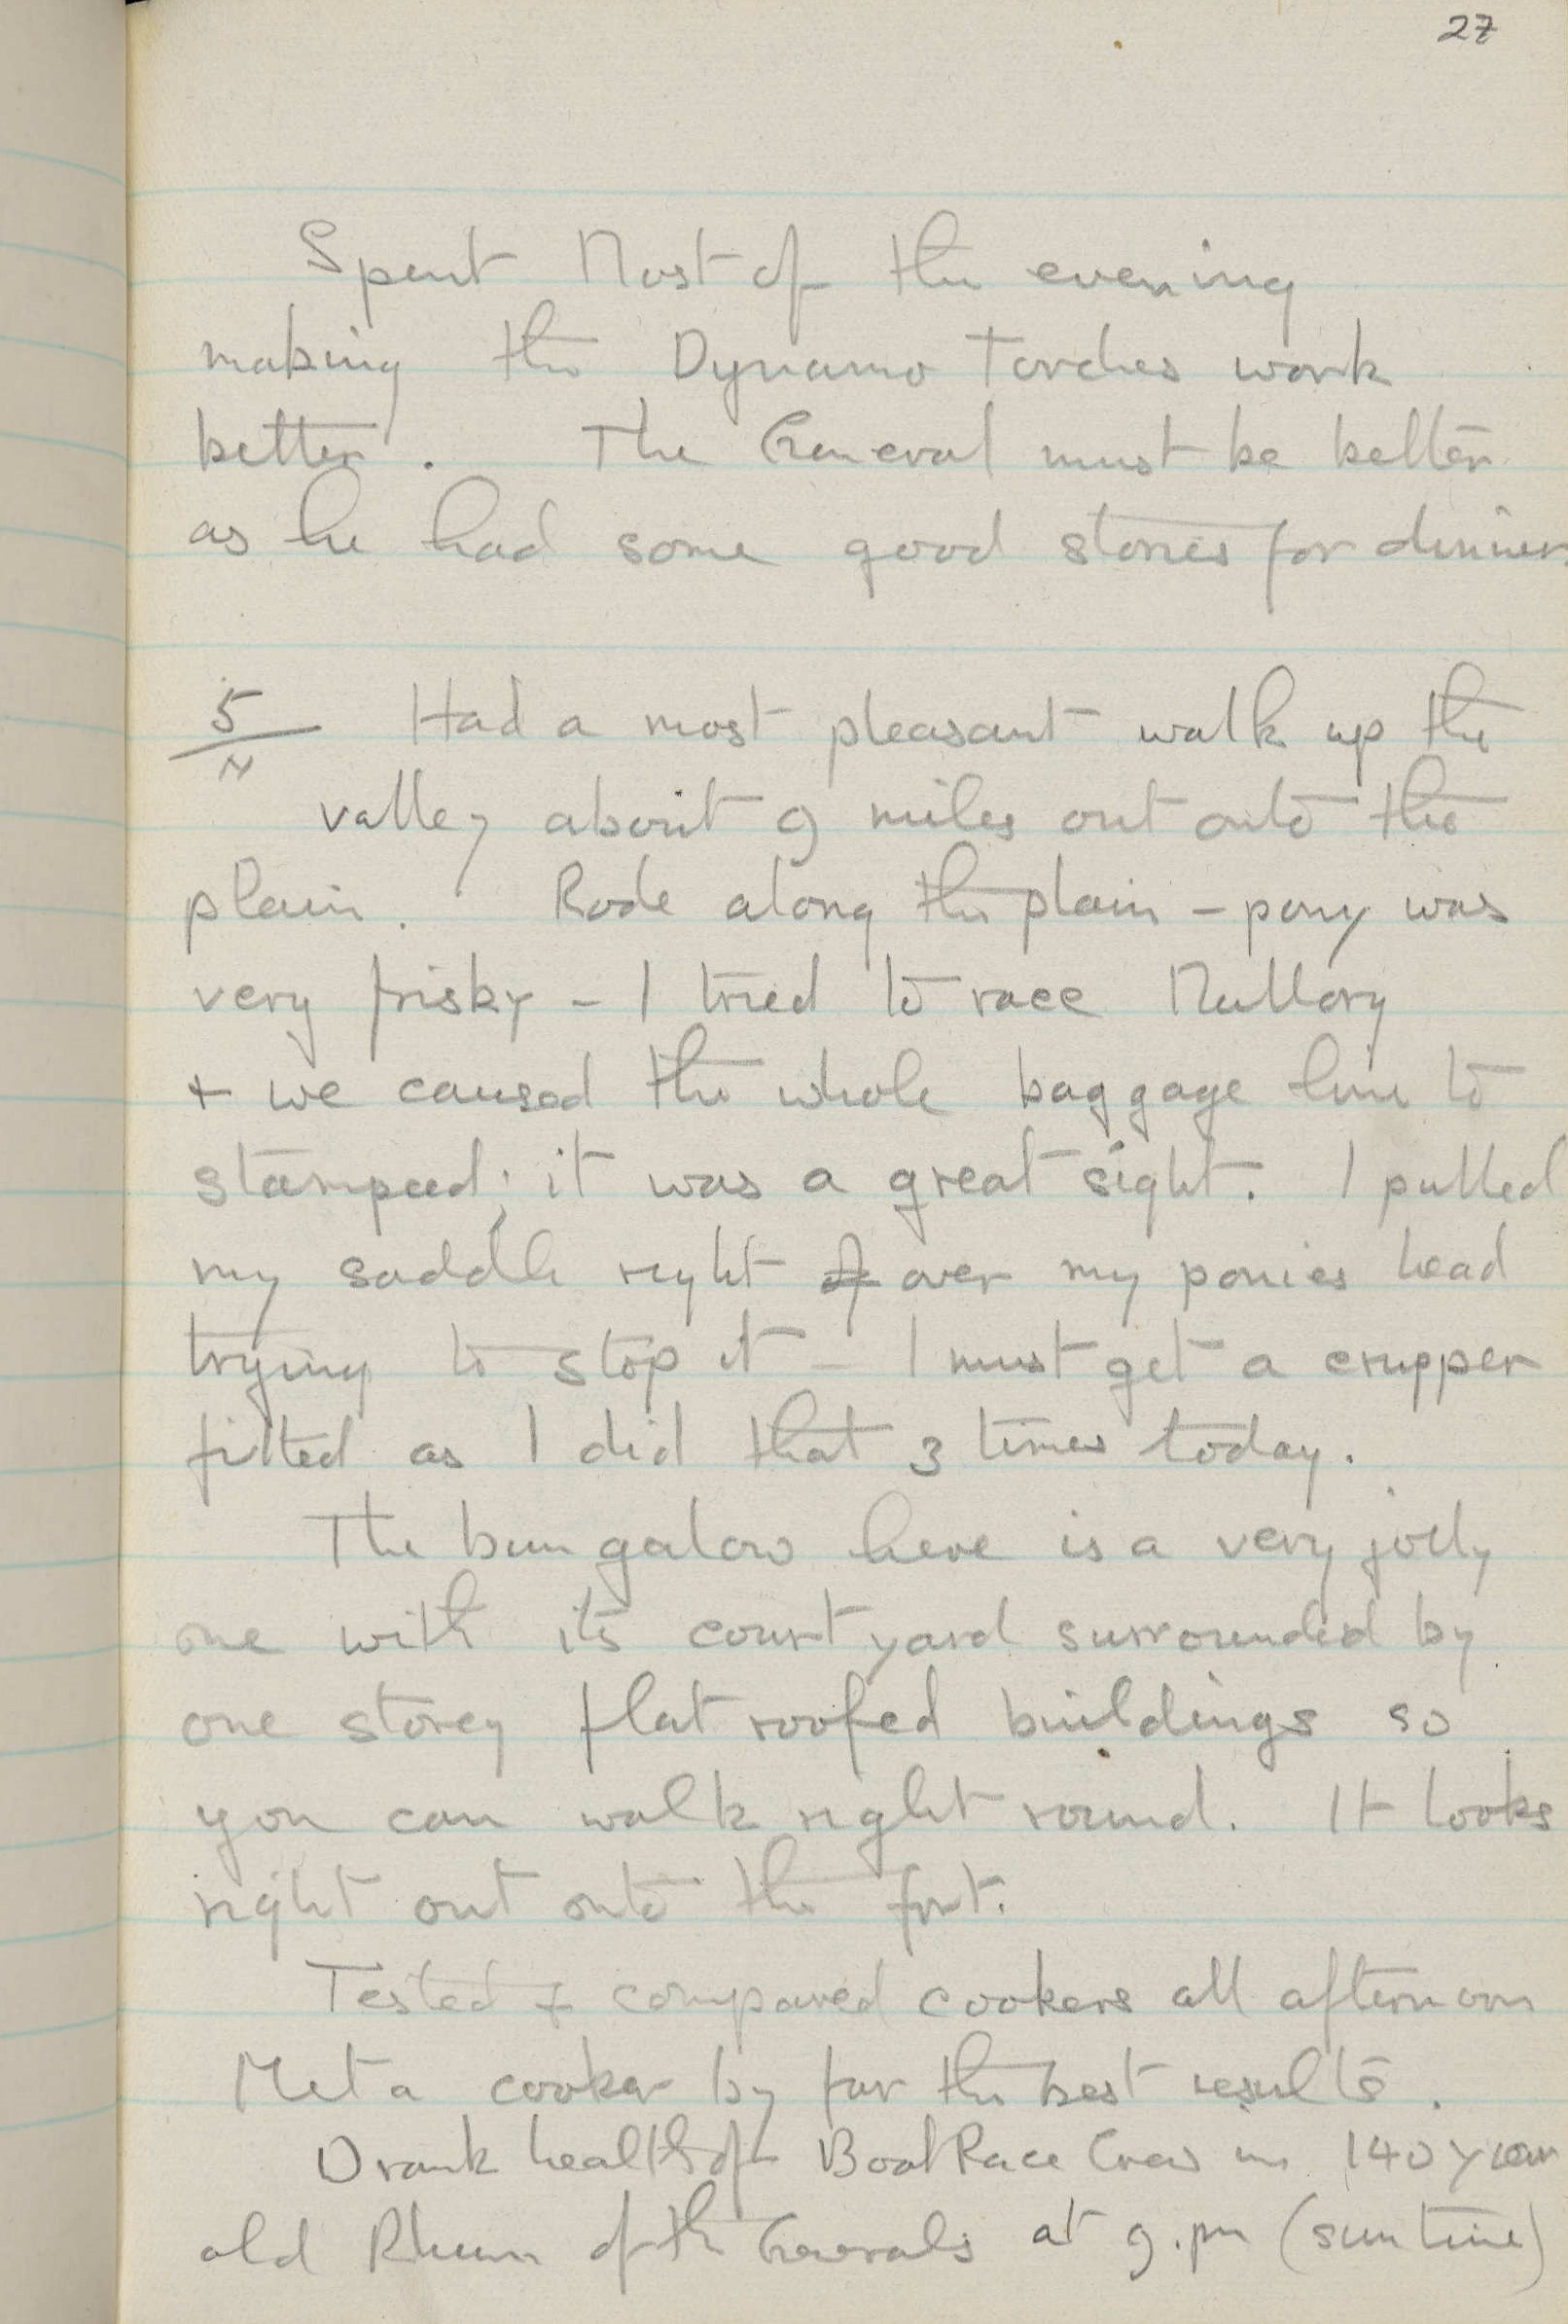 27
Spent Most of the evening
making the Dynamo Torches work
better. The General must be better
as he had some good stories for dinner.
5/4 Had a most pleasant walk up the
valley about 9 miles out onto the
plain. Rode along the plain - pony was
very frisky - I tried to race Mallory
+ we caused the whole baggage line to
stampeed; it was a great sight. I pulled
my saddle right over my ponies head
trying to stop it - I must get a crupper
fitted as I did that 3 times today.
The bungalow here is a very jolly
one with its court yard surrounded by
one storey flat roofed buildings so
you can walk right round. It looks
right out onto the fort.
Tested + compared cookers all afternoon
Meta cooker by far the best results.
Drank health of Boat Race Crew in 140 year
old Rhum of the Generals at 9.pm (sun time)